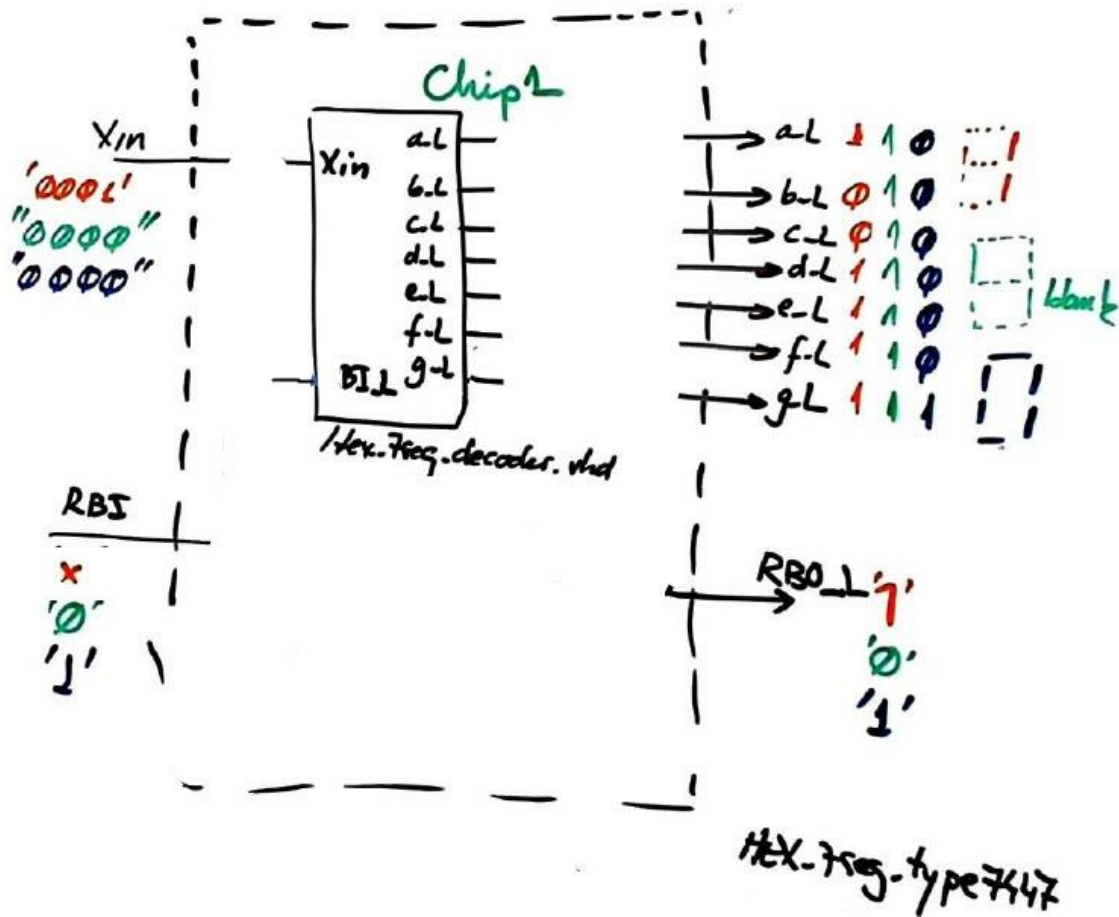 Chip1
Xin
'0001'
"0000"
"0000"
Xin
a_L
b_L
c_L
d_L
e_L
f_L
g_L
BI_L
Hex_7seg_decoder.vhd
a_L 1 1 0
b_L 0 1 0
c_L 0 1 0
d_L 1 1 0
e_L 1 1 0
f_L 1 1 0
g_L 1 1 1
blank
RBI
x
'0'
'1'
RBO_L '1'
'0'
'1'
HEX_7seg_type7447